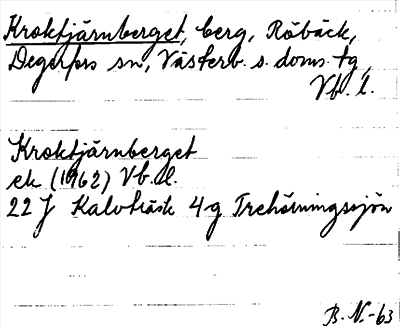 Kroktjärnberget, berg, Röbäck,
Degerfors sn, Västerb. s. doms. tg,
Vb. l.
Kroktjärnberget
ek (1962) Vb. l.
22 J Kalvträsk 4 g Trehörningssjön
B. N.-63